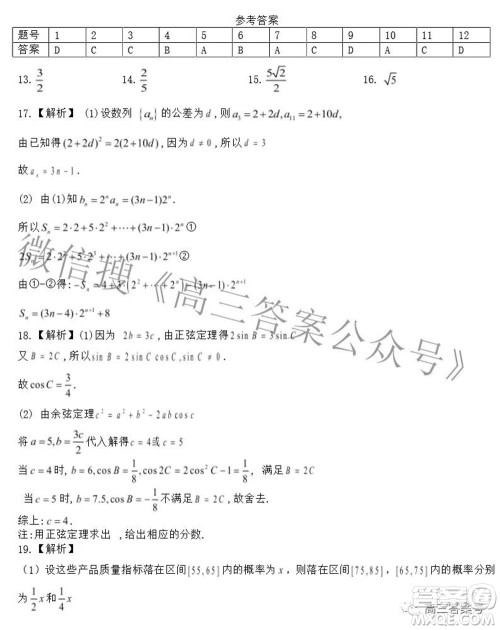 参考答案
题号 1 2 3 4 5 6 7 8 9 10 11 12
答案 D C C B A B A C D A C D
13. 3/2 14. 2/5 15. 5√2/2 16. √5
17.【解析】 (1)设数列 {aₙ} 的公差为 d，则 a₃ = 2+2d, a₁₁ = 2+10d,
由已知得 (2+2d)² = 2(2+10d)，因为 d ≠ 0，所以 d = 3
故 aₙ = 3n−1.
(2) 由(1)知 bₙ = 2ⁿaₙ = (3n−1)2ⁿ.
所以 Sₙ = 2·2+5·2²+⋯+(3n−1)·2ⁿ ①
2Sₙ = 2·2²+5·2³+⋯+(3n−1)·2ⁿ⁺¹ ②
由①−②得: −Sₙ = 4+3·(2²+⋯+2ⁿ)−(3n−1)·2ⁿ⁺¹
Sₙ = (3n−4)·2ⁿ⁺¹+8
18.【解析】(1)因为 2b = 3c，由正弦定理得 2sinB = 3sinC
又 B = 2C，所以 sinB = 2sinC cosC, sinC ≠ 0.
故 cosC = 3/4.
(2) 由余弦定理 c² = a²+b²−2ab cosc
将 a = 5, b = 3c/2 代入解得 c = 4或 c = 5
当 c = 4 时, b = 6, cosB = 1/8, cos2C = 2cos²C−1 = 1/8, 满足 B = 2C
当 c = 5 时, b = 7.5, cosB = −1/8 不满足 B = 2C，故舍去.
综上: c = 4.
注:用正弦定理求出 ,给出相应的分数.
19.【解析】
（1）设这些产品质量指标落在区间[55,65]内的概率为 x，则落在区间[75,85]，[65,75]内的概率分别
为 1/2 x和 1/4 x
微信搜《高三答案公众号》
高三答案号